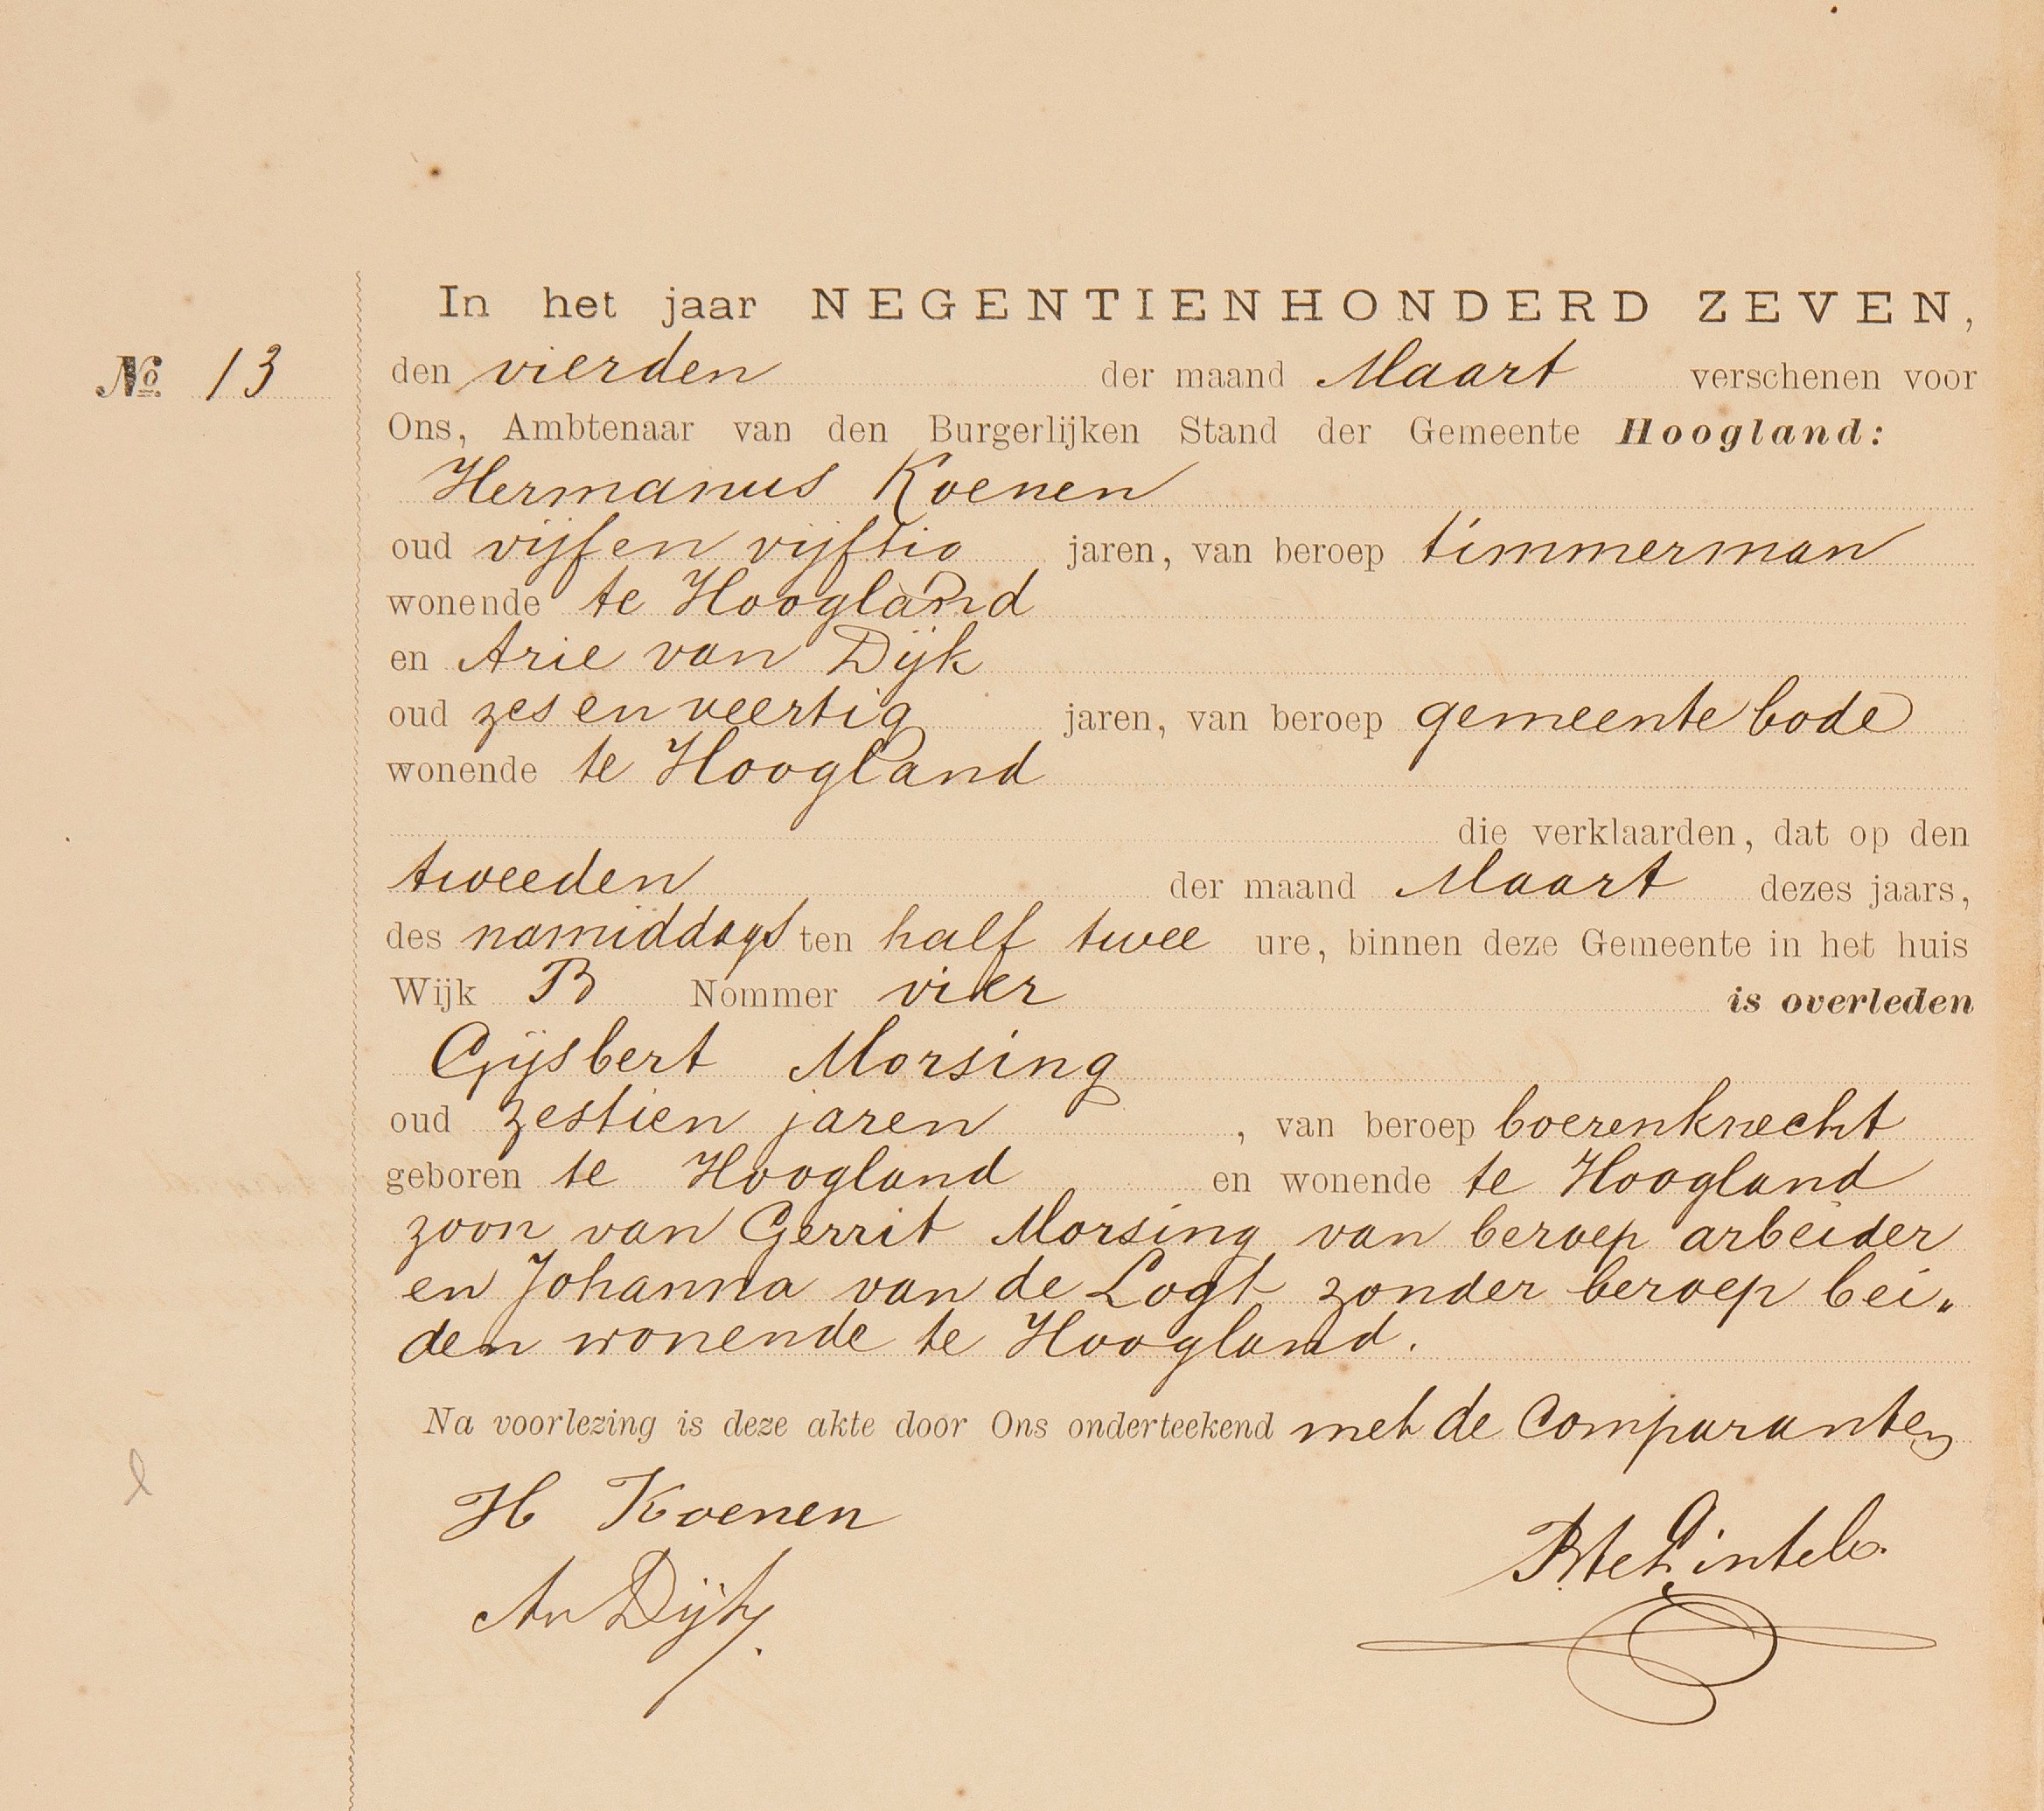 In het jaar NEGENTIENHONDERD ZEVEN,
No. 13
den vierden der maand Maart verschenen voor
Ons, Ambtenaar van den Burgerlijken Stand der Gemeente Hoogland:
Hermanus Koenen
oud vijf en vijftig jaren, van beroep timmerman
wonende te Hoogland
en Arie van Dijk
oud zes en veertig jaren, van beroep gemeente bode
wonende te Hoogland
die verklaarden, dat op den
tweeden der maand Maart dezes jaars,
des namiddags ten half twee ure, binnen deze Gemeente in het huis
Wijk B Nommer vier is overleden
Gijsbert Morsing
oud zestien jaren, van beroep boerenknecht
geboren te Hoogland en wonende te Hoogland
zoon van Gerrit Morsing van beroep arbeider
en Johanna van de Logt zonder beroep bei„
den wonende te Hoogland.
Na voorlezing is deze akte door Ons onderteekend met de Comparanten
H Koenen
Av Dijk